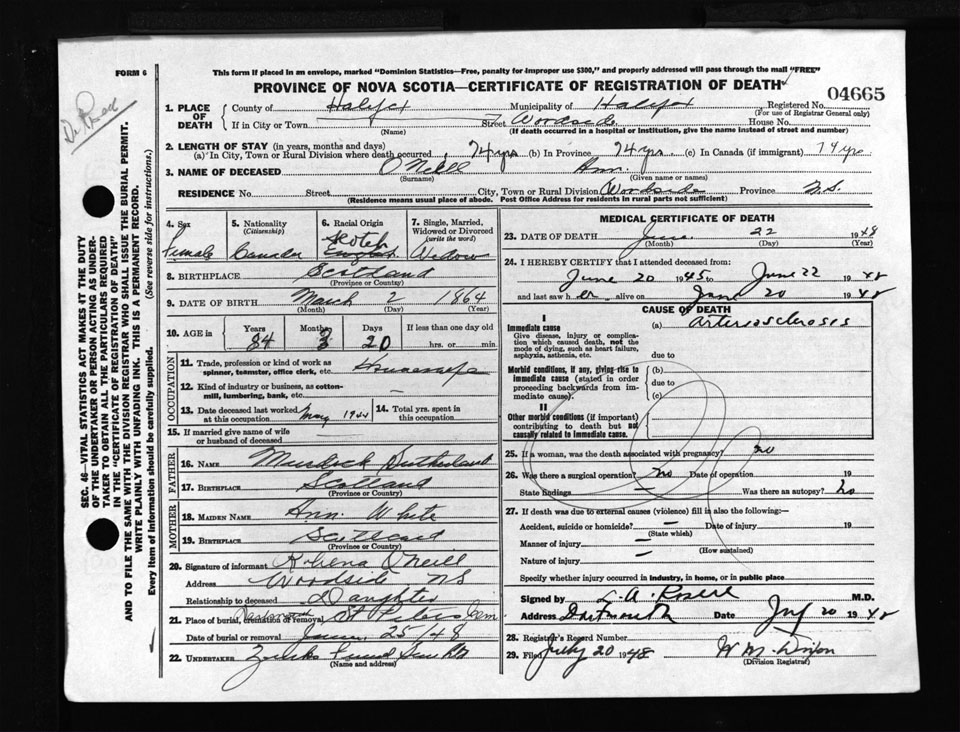 FORM 6
This form if placed in an envelope, marked "Dominion Statistics—Free, penalty for improper use $300," and properly addressed will pass through the mail "FREE"
PROVINCE OF NOVA SCOTIA—CERTIFICATE OF REGISTRATION OF DEATH
04665
1. PLACE OF DEATH County of Halifax Municipality of Halifax Registered No.
(For use of Registrar General only)
If in City or Town Street Woodside House No.
(Name) (If death occurred in a hospital or institution, give the name instead of street and number)
2. LENGTH OF STAY (in years, months and days)
(a) In City, Town or Rural Division where death occurred 74 yrs (b) In Province 74 yrs (c) In Canada (if immigrant) 74 yrs
3. NAME OF DECEASED O'Neill Ann.
(Surname) (Given name or names)
RESIDENCE No. Street City, Town or Rural Division Woodside Province N.S.
(Residence means usual place of abode. Post Office Address for residents in rural parts not sufficient)
4. Sex Female
5. Nationality (Citizenship) Canada
6. Racial Origin Scotch
7. Single, Married, Widowed or Divorced (write the word) Widow
8. BIRTHPLACE Scotland
(Province or Country)
9. DATE OF BIRTH March 2 1864
(Month) (Day) (Year)
10. AGE in Years 84 Months 3 Days 20 If less than one day old hrs. or min.
OCCUPATION
11. Trade, profession or kind of work as spinner, teamster, office clerk, etc. Housewife
12. Kind of industry or business, as cotton-mill, lumbering, bank, etc.
13. Date deceased last worked at this occupation May 1944
14. Total yrs. spent in this occupation
15. If married give name of wife or husband of deceased
FATHER
16. NAME Murdock Sutherland
17. BIRTHPLACE Scotland
(Province or Country)
MOTHER
18. MAIDEN NAME Ann. White
19. BIRTHPLACE Scotland
(Province or Country)
20. Signature of informant O'Neill
Address Woodside NS
Relationship to deceased Daughter
21. Place of burial, cremation or removal St Peters Cem
Date of burial or removal June 25/48
22. UNDERTAKER
(Name and address)
MEDICAL CERTIFICATE OF DEATH
23. DATE OF DEATH June 22 1948
(Month) (Day) (Year)
24. I HEREBY CERTIFY that I attended deceased from:
June 20 1945 to June 22 1948
and last saw h er alive on June 20 1948
CAUSE OF DEATH
I
Immediate cause (a) arteriosclerosis
Give disease, injury or complication which caused death, not the mode of dying, such as heart failure, asphyxia, asthenia, etc.
due to
Morbid conditions, if any, giving rise to immediate cause (stated in order proceeding backwards from immediate cause). (b)
due to
(c)
II
Other morbid conditions (if important) contributing to death but not causally related to immediate cause.
25. If a woman, was the death associated with pregnancy? no
26. Was there a surgical operation? no Date of operation 19
State findings — Was there an autopsy? no
27. If death was due to external causes (violence) fill in also the following:—
Accident, suicide or homicide? — Date of injury 19
(State which)
Manner of injury —
(How sustained)
Nature of injury —
Specify whether injury occurred in industry, in home, or in public place
Signed by M.D.
Address Dartmouth Date July 20 1948
28. Registrar's Record Number
29. Filed July 20 1948 W M. Dixon
(Division Registrar)
SEC. 46—VITAL STATISTICS ACT MAKES IT THE DUTY
OF THE UNDERTAKER OR PERSON ACTING AS UNDER-
TAKER TO OBTAIN ALL THE PARTICULARS REQUIRED
IN THE "CERTIFICATE OF REGISTRATION OF DEATH"
AND TO FILE THE SAME WITH THE DIVISION REGISTRAR WHO SHALL ISSUE THE BURIAL PERMIT.
WRITE PLAINLY WITH UNFADING INK. THIS IS A PERMANENT RECORD.
Every item of information should be carefully supplied. (See reverse side for instructions.)